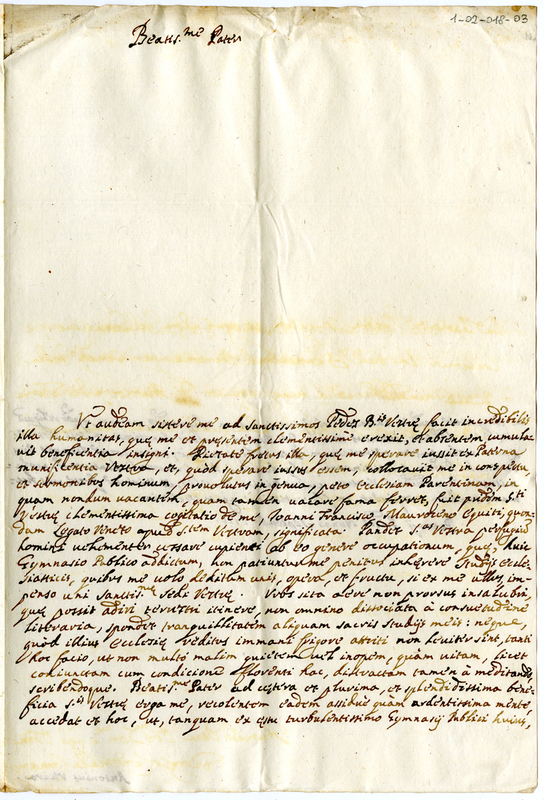 1-02-018-03
Beatis.me Pater
Ut audeam sistere me ad sanctissimos Pedes B.is Vestrę facit incredibilis
illa humanitas, quę me et pręsentem clementissime erexit, et absentem cumula-
vit beneficentia insigni. Pietate fretus illa, quę me sperare iussit ex Paterna
munificentia Vestra, et, quòd sperare iussus essem, collocavit me in conspectu
et sermonibus hominum, provolutus in genua, peto Ecclesiam Parentinam, in
quam nondum vacantem, quam tamen vacare fama ferret, fuit pridem S.ti
Vestrę clementissima cogitatio de me, Ioanni Francisco Mauroceno Equiti, quon-
dam Legato Veneto apud S.tem Vestram, significata. Pandet S.as Vestra perfugium
homini vehementer cessare cupienti ab eo genere occupationum, quę, huic
Gymnasio Publico addictum, non patiuntur me penitus inhęrere Studijs Eccle-
siasticis, quibus me volo deditum unis, opera, et fructu, si ex me ullus, im-
penso uni Sanctis.mę Sedi Vestrę. Urbs sita aere non prorsus insalubri,
quę possit adiri terrestri itinere, non omnino dissociata à consuetudine
litteraria, spondet tranquillitatem aliquam sacris Studijs meis: neque,
quòd illius Ecclesię reditus immani frigore attriti non leviter sint, tanti
hoc facio, ut non multò malim quietem vel inopem, quàm vitam, licet
coniunctam cum condicione florenti hac, distractam tamen à meditando,
scribendoque. Beatis.me Pater ad cętera et plurima, et splendidissima bene-
ficia S.is Vestrę erga me, recolentem eadem assidue quam ardentissima mente,
accedat et hoc, ut, tanquam ex ęstu turbulentissimo Gymnasij Publici huius,